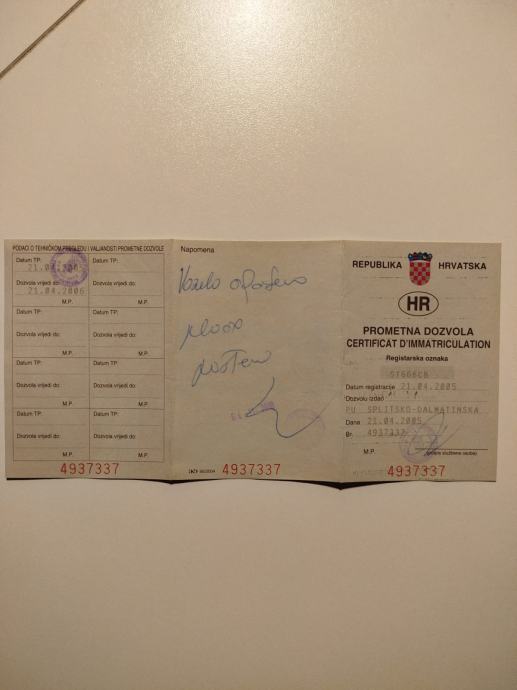 PODACI O TEHNIČKOM PREGLEDU I VALJANOSTI PROMETNE DOZVOLE
Datum TP:
21.04.2005
Dozvola vrijedi do:
21.04.2006
M.P.
Datum TP:
Dozvola vrijedi do:
M.P.
Datum TP:
Dozvola vrijedi do:
M.P.
Datum TP:
Dozvola vrijedi do:
M.P.
Datum TP:
Dozvola vrijedi do:
M.P.
Datum TP:
Dozvola vrijedi do:
M.P.
Datum TP:
Dozvola vrijedi do:
M.P.
Datum TP:
Dozvola vrijedi do:
M.P.
4937337
Napomena
4937337
REPUBLIKA HRVATSKA
HR
PROMETNA DOZVOLA
CERTIFICAT D'IMMATRICULATION
Registarska oznaka
ST666CB
Datum registracije 21.04.2005
Dozvolu izdao
PU SPLITSKO-DALMATINSKA
Dana 21.04.2005
Br. 4937337
M.P.
(potpis službene osobe)
4937337